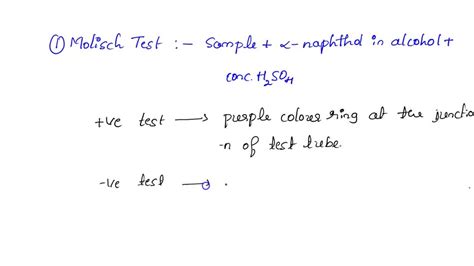 ① Molisch Test :- Sample + α-naphthol in alcohol +
conc. H₂SO₄
+ve test → purple colour ring at the junctio
-n of test tube.
-ve test →